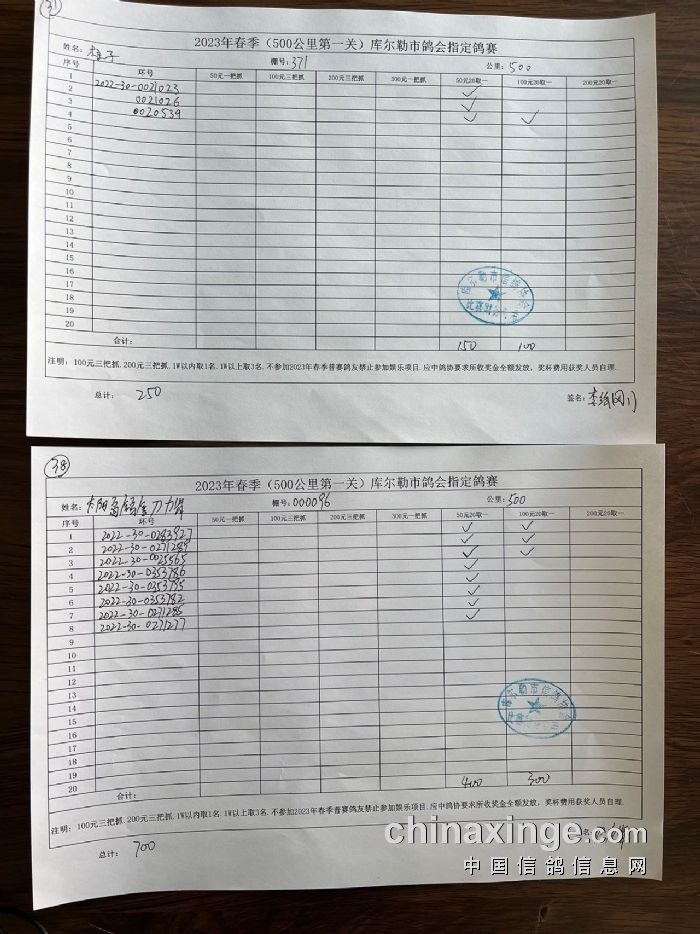 31
2023年春季（500公里第一关）库尔勒市鸽会指定鸽赛
姓名: 子 棚号: 371 公里: 500
序号 环号 50元一把抓 100元三把抓 200元三把抓 300元一把抓 50元20取一 100元20取一 200元20取一
1 2022-30-0021023 ✓
2 0021026 ✓
3 0020539 ✓ ✓
4
5
6
7
8
9
10
11
12
13
14
15
16
17
18
19
20
库尔勒市信鸽协会
合计: 150 100
注明: 100元三把抓.200元三把抓.1W以内取1名.1W以上取3名.不参加2023年春季普赛鸽友禁止参加娱乐项目.应中鸽协要求所收奖金全额发放，奖杯费用获奖人员自理.
总计: 250 签名:
38
2023年春季（500公里第一关）库尔勒市鸽会指定鸽赛
姓名: 棚号: 000096 公里: 500
序号 环号 50元一把抓 100元三把抓 200元三把抓 300元一把抓 50元20取一 100元20取一 200元20取一
1 2022-30-0283927 ✓ ✓
2 2022-30-0271289 ✓ ✓
3 2022-30-0025565 ✓ ✓
4 2022-30-0353786 ✓
5 2022-30-0353795 ✓
6 2022-30-0353782 ✓
7 2022-30-0271285 ✓
8 2022-30-0271277 ✓
9
10
11
12
13
14
15
16
17
18
19
20
库尔勒市信鸽协会
合计: 400 300
注明: 100元三把抓.200元三把抓.1W以内取1名.1W以上取3名.不参加2023年春季普赛鸽友禁止参加娱乐项目.应中鸽协要求所收奖金全额发放，奖杯费用获奖人员自理.
总计: 700
chinaxinge.com
中国信鸽信息网